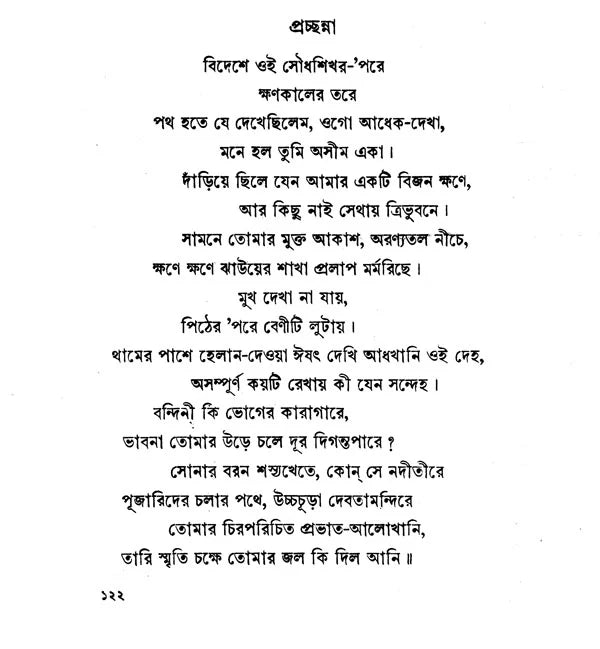 প্রচ্ছন্না
বিদেশে ওই সৌধশিখর-'পরে
ক্ষণকালের তরে
পথ হতে যে দেখেছিলেম, ওগো আধেক-দেখা,
মনে হল তুমি অসীম একা।
দাঁড়িয়ে ছিলে যেন আমার একটি বিজন ক্ষণে,
আর কিছু নাই সেথায় ত্রিভুবনে।
সামনে তোমার মুক্ত আকাশ, অরণ্যতল নীচে,
ক্ষণে ক্ষণে ঝাউয়ের শাখা প্রলাপ মর্মরিছে।
মুখ দেখা না যায়,
পিঠের 'পরে বেণীটি লুটায়।
থামের পাশে হেলান-দেওয়া ঈষৎ দেখি আধখানি ওই দেহ,
অসম্পূর্ণ কয়টি রেখায় কী যেন সন্দেহ।
বন্দিনী কি ভোগের কারাগারে,
ভাবনা তোমার উড়ে চলে দূর দিগন্তপারে?
সোনার বরন শস্যখেতে, কোন্ সে নদীতীরে
পূজারিদের চলার পথে, উচ্চচূড়া দেবতামন্দিরে
তোমার চিরপরিচিত প্রভাত-আলোখানি,
তারি স্মৃতি চক্ষে তোমার জল কি দিল আনি॥
১২২